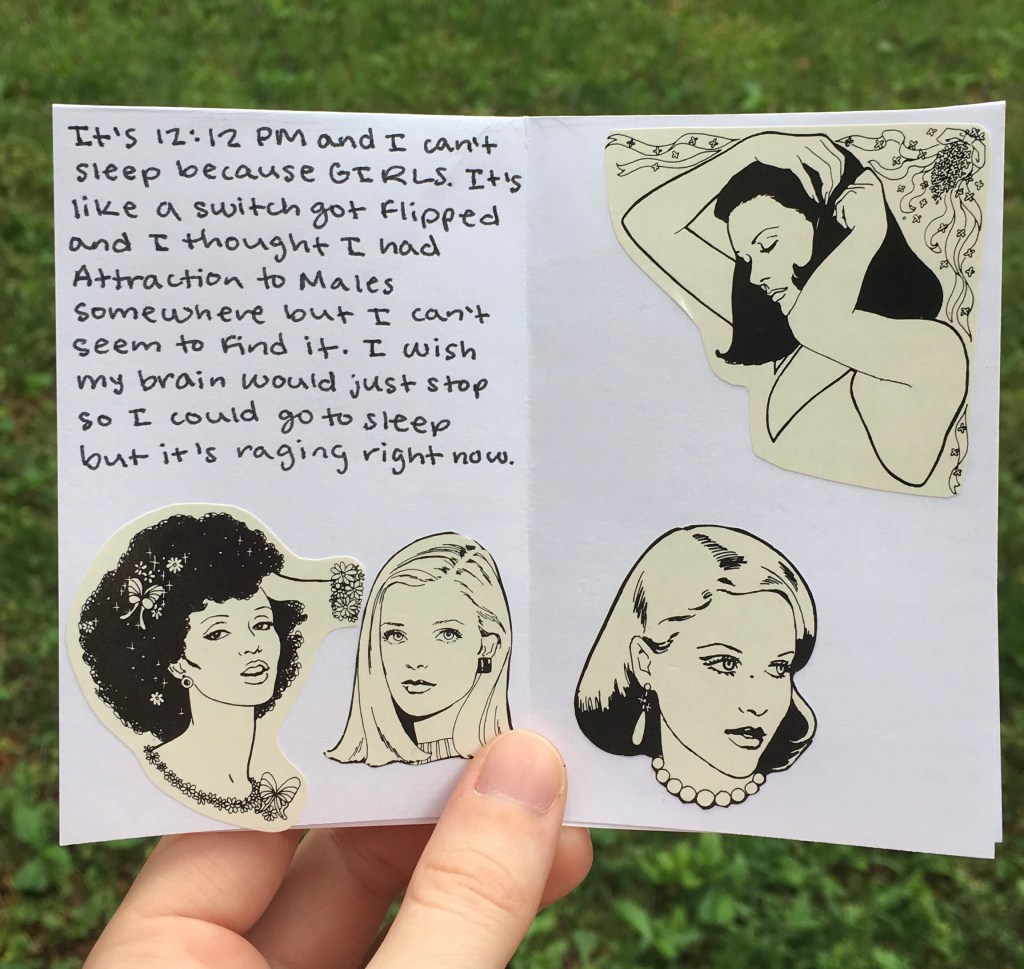 It's 12:12 PM and I can't
sleep because GIRLS. It's
like a switch got flipped
and I thought I had
Attraction to Males
somewhere but I can't
seem to find it. I wish
my brain would just stop
so I could go to sleep
but it's raging right now.